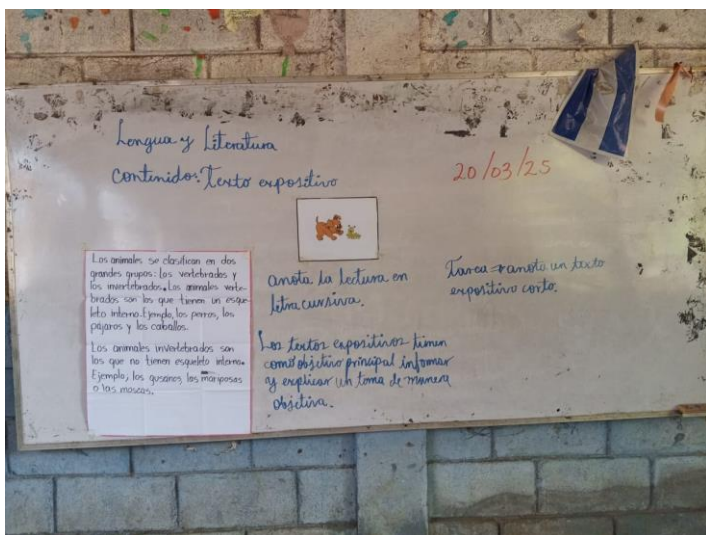 Lengua y Literatura
Contenido: Texto expositivo
20/03/25
Los animales se clasifican en dos
grandes grupos: los vertebrados y
los invertebrados. Los animales verte-
brados son los que tienen un esque-
leto interno. Ejemplo, los perros, los
pájaros y los caballos.
Los animales invertebrados son
los que no tienen esqueleto interno.
Ejemplo, los gusanos, las mariposas
o las moscas.
anota la lectura en
letra cursiva.
Los textos expositivos tienen
como objetivo principal informar
y explicar un tema de manera
objetiva.
Tarea = anota un texto
expositivo corto.